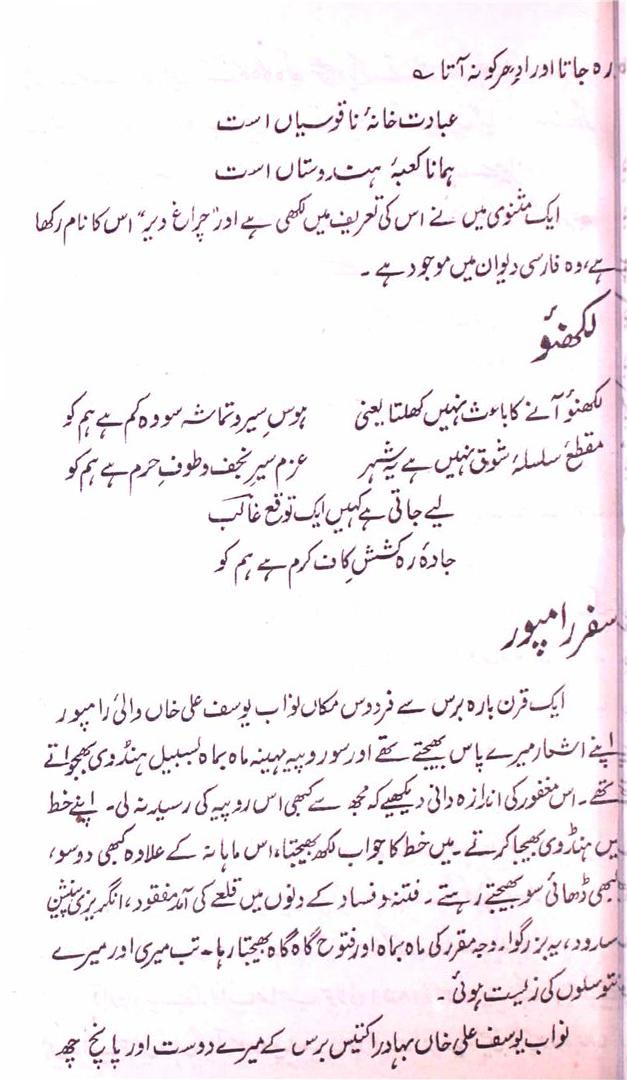 رہ جاتا اور ادھر کو نہ آتا ے
عبادت خانۂ ناقوسیاں است
ہمانا کعبۂ ہندوستاں است
ایک مثنوی میں نے اس کی تعریف میں لکھی ہے اور "چراغ دیر" اس کا نام رکھا
ہے، وہ فارسی دیوان میں موجود ہے ۔
لکھنؤ
لکھنؤ آنے کا باعث نہیں کھلتا یعنی ہوسِ سیر و تماشہ سو وہ کم ہے ہم کو
مقطعِ سلسلۂ شوق نہیں ہے یہ شہر عزم سیرِ نجف و طوفِ حرم ہے ہم کو
لیے جاتی ہے کہیں ایک توقع غالب
جادۂ رہ کششِ کاف کرم ہے ہم کو
سفر رامپور
ایک قرن بارہ برس سے فردوس مکاں نواب یوسف علی خاں والیٔ رامپور
اپنے اشعار میرے پاس بھیجتے تھے اور سو روپیہ مہینہ ماہ بماہ بسبیل ہنڈوی بھجواتے
تھے ۔ اس مغفور کی اندازہ دانی دیکھیے کہ مجھ سے کبھی اس روپیہ کی رسید نہ لی۔ اپنے خط
میں ہنڈوی بھیجا کرتے ۔ میں خط کا جواب لکھ بھیجتا، اس ماہانہ کے علاوہ کبھی دو سو،
کبھی ڈھائی سو بھیجتے رہتے ۔ فتنہ و فساد کے دنوں میں قلعے کی آمد مفقود، انگریزی پنشن
مسدود، یہ بزرگوار وجہ مقرری ماہ بماہ اور فتوح گاہ گاہ بھیجتا رہا۔ تب میری اور میرے
متوسلوں کی زیست ہوئی ۔
نواب یوسف علی خاں بہادر اکتیس برس کے میرے دوست اور پانچ چھ